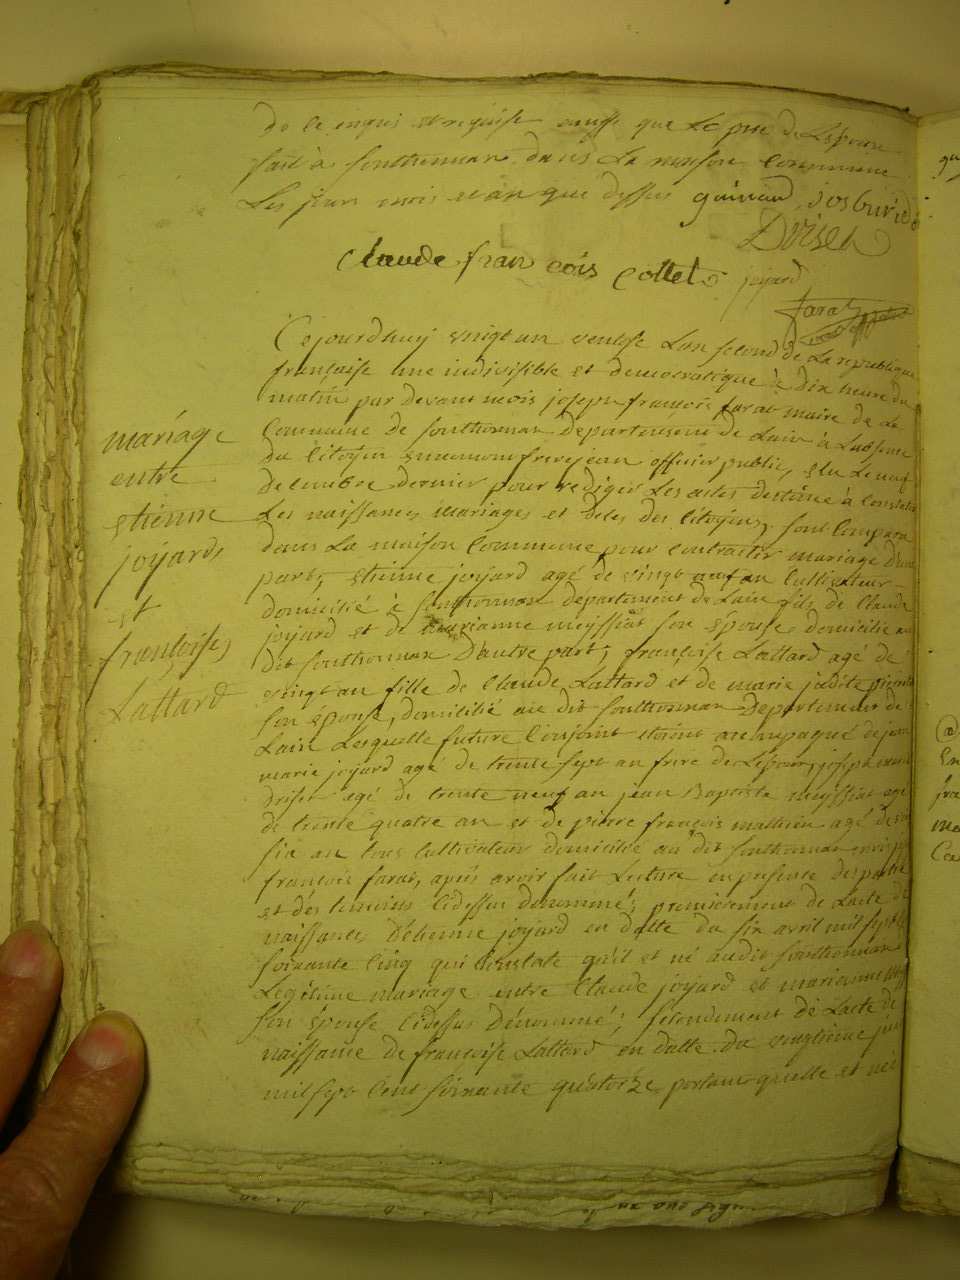 de ce enquis et requise sauf que le pere de Lepouse
fait à sonthonnax dans La maison Commune
Les jour mois et an que dessus guinand josburide
Dviset
claude fran cois Collet joyard
farat
Cejourdhuy vingt un ventose Lan second de La republique
française une indivisible et democratique à dix heure du
matin par devant mois joseph françois farat maire de La
Commune de sonthonnax departement de Lain à Labsence
du Citoyen frerejean officier public, élu Le neuf
decembre dernier pour rediger Les actes destiné à Constater
Les naissances, mariages et dèces des Citoyens, sont Comparu
dans La maison Commune pour Contracter mariage d'une
part, étienne joÿard agé de vingt neuf an Cultivateur
domicilié à sonthonnax departement de Lain fils de Claude
joÿard et de marianne meyssiat son épouse domicilié au
dit sonthonnax d'autre part, françoise Lattard agé de
vingt an fille de Claude Lattard et de marie judite
son épouse, domicilié au dit sonthonnax Departement de
Lain Lesquelle futures Conjoint étoient accompagné de jean
marie joÿard agé de trente sept an frere de Lepoux, joseph marie
driset agé de trente neuf an jean Baptiste meyssiat agé
de trente quatre an et de pierre françois mathieu agé de
six an tous Cultivateur domicilié au dit sonthonnax
françois farat, aprés avoir fait Lecture en presence des partie
et des temoins Cidessus denommé; premierement de Lacte de
naissance D'étienne joÿard en datte du six avril mil sept
soixante cinq qui Constate qu'il et né audit sonthonnax
Legitime mariage entre Claude joÿard et marianne
son épouse Cidessus dénommé; secondement de Lacte de
naissance de françoise Lattard en datte du vingtieme
mil sept Cent soixante quatorze portant quelle et né
mariage
entre
étienne
joÿard,
et
françoise,
Lattard